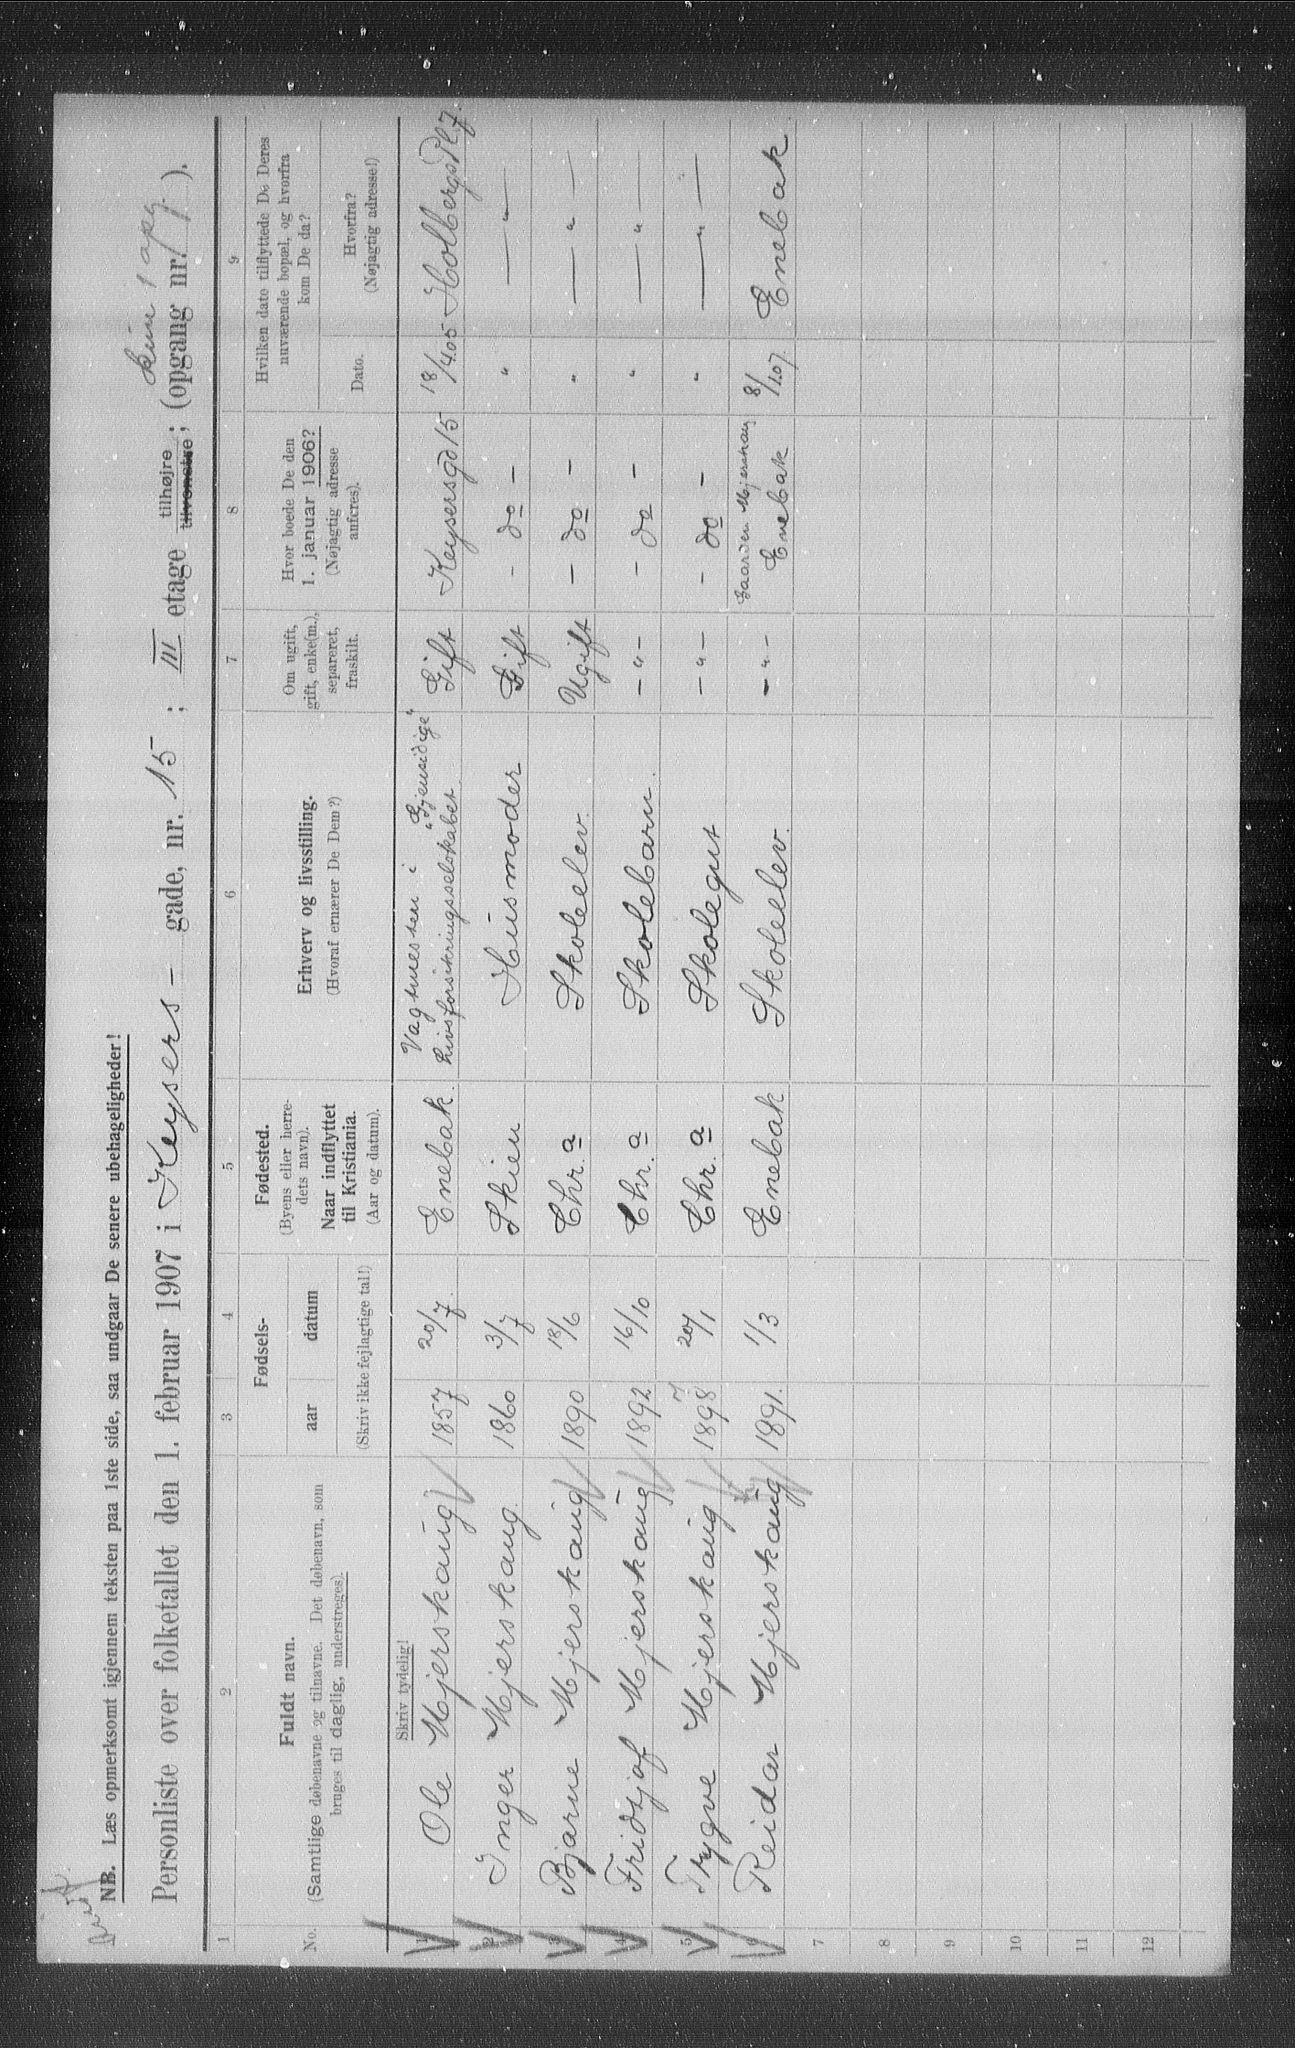 NB. Læs opmerksomt igjennem teksten paa 1ste side, saa undgaar De senere ubehageligheder!
Kun 1 opg.
Personliste over folketallet den 1. februar 1907 i Keysers - gade, nr. 15; III etage tilhøjre tilvenstre; (opgang nr. / ).
1 2 3 4 5 6 7 8 9
No. Fuldt navn. (Samtlige døbenavne og tilnavne. Det døbenavn, som bruges til daglig, understreges).
Fødsels- aar datum (Skriv ikke fejlagtige tal!)
Fødested. (Byens eller herredets navn). Naar indflyttet til Kristiania. (Aar og datum).
Erhverv og livsstilling. (Hvoraf ernærer De Dem?)
Om ugift, gift, enke(m.), separeret, fraskilt.
Hvor boede De den 1. januar 1906? (Nøjagtig adresse anføres).
Hvilken dato tilflyttede De Deres nuværende bopæl, og hvorfra kom De da?
Dato. Hvorfra? (Nøjagtig adresse!)
Skriv tydelig!
1 Ole Mjerskaug 1857 20/7 Enebak. Vagtmester i Livsforsikringsselskabet „Gjensidige“ Gift Keysersgd 15 18/4.05 Holbergs Pl. 7.
2 Inger Mjerskaug. 1860 3/7 Skien Husmoder Gift - do - " — " —
3 Bjarne Mjerskaug 1890 18/6 Chr. a Skoleelev. Ugift - do - " — " —
4 Fridtjof Mjerskaug 1892 16/10 Chr. a Skolebarn. - " - - do - " — " —
5 Trygve Mjerskaug 1898 7 20/1 Chr. a Skolegut - " - - do - " — " —
6 Reidar Mjerskaug 1891. 1/3 Enebak Skoleelev. - " - Gaarden Mjerskaug Enebak 8/1.07. Enebak
7
8
9
10
11
12